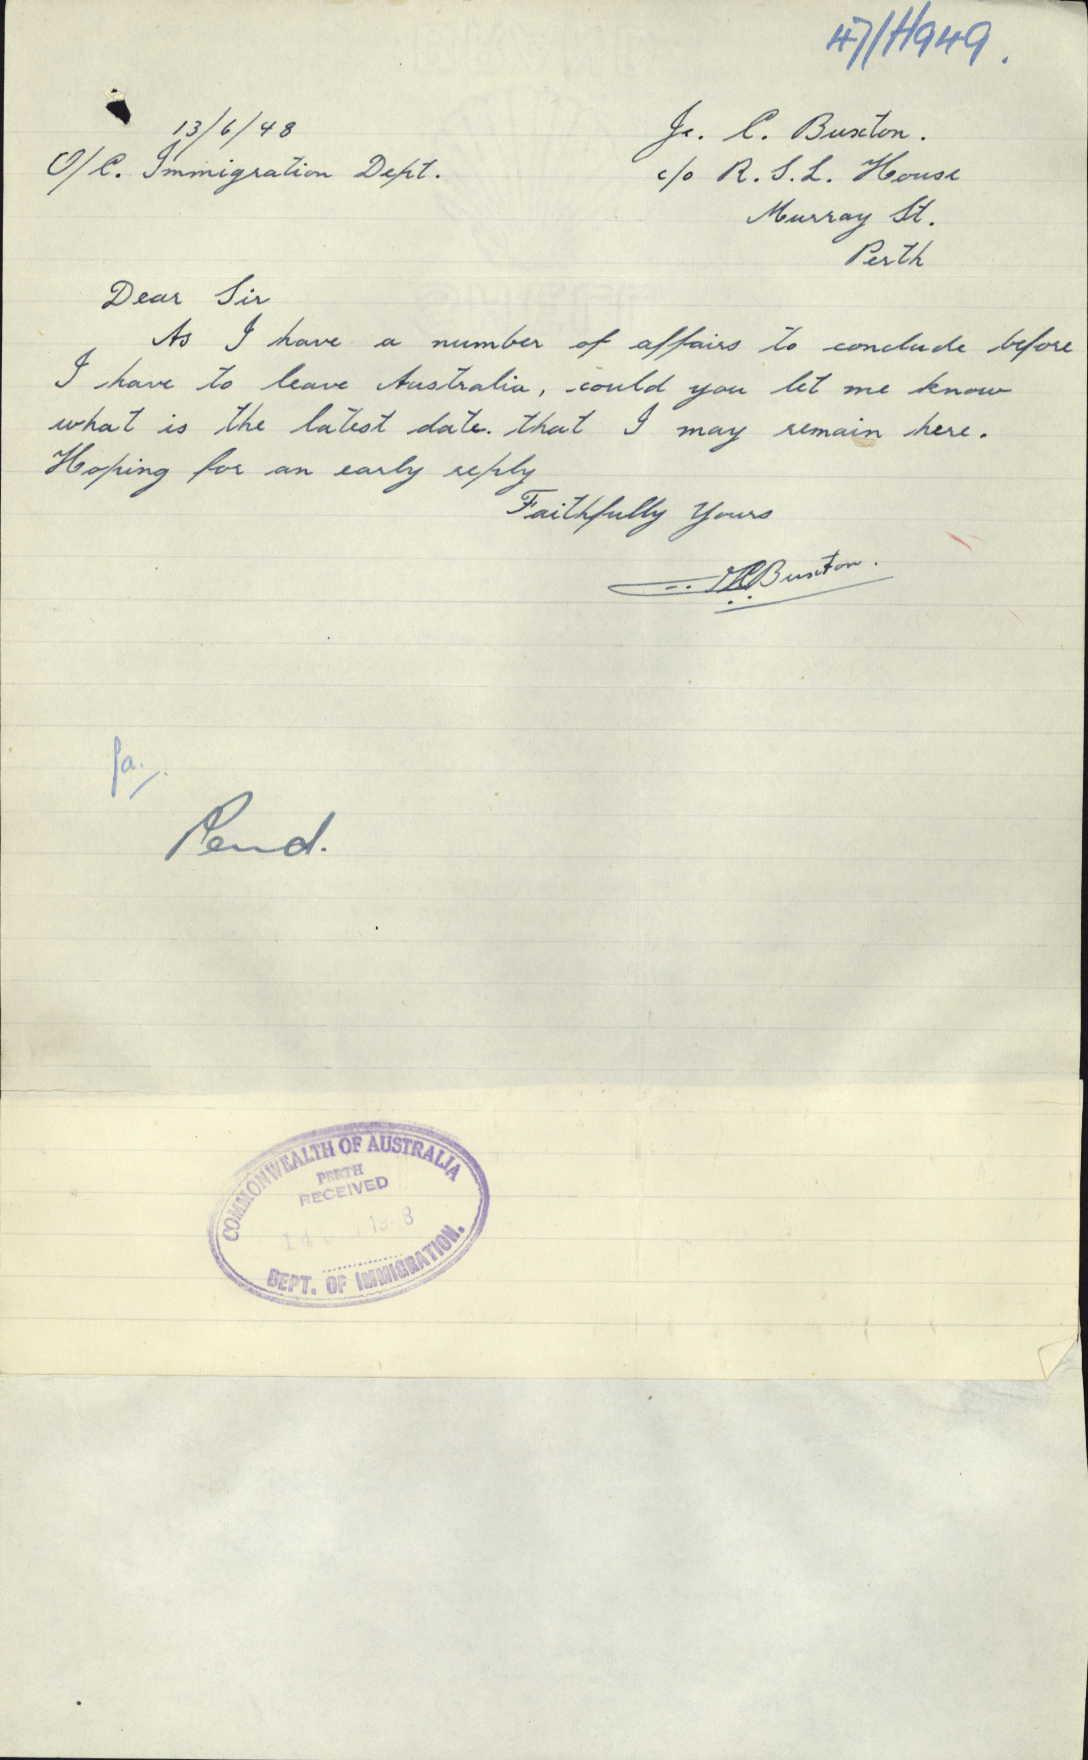 47/H949.
13/6/48
O/C. Immigration Dept.
C. Buxton.
c/o R. S. L. House
Murray St.
Perth
Dear Sir
As I have a number of affairs to conclude before
I have to leave Australia, could you let me know
what is the latest date. that I may remain here.
Hoping for an early reply
Faithfully Yours
Buxton.
Pend.
COMMONWEALTH OF AUSTRALIA
PERTH
RECEIVED
DEPT. OF IMMIGRATION.